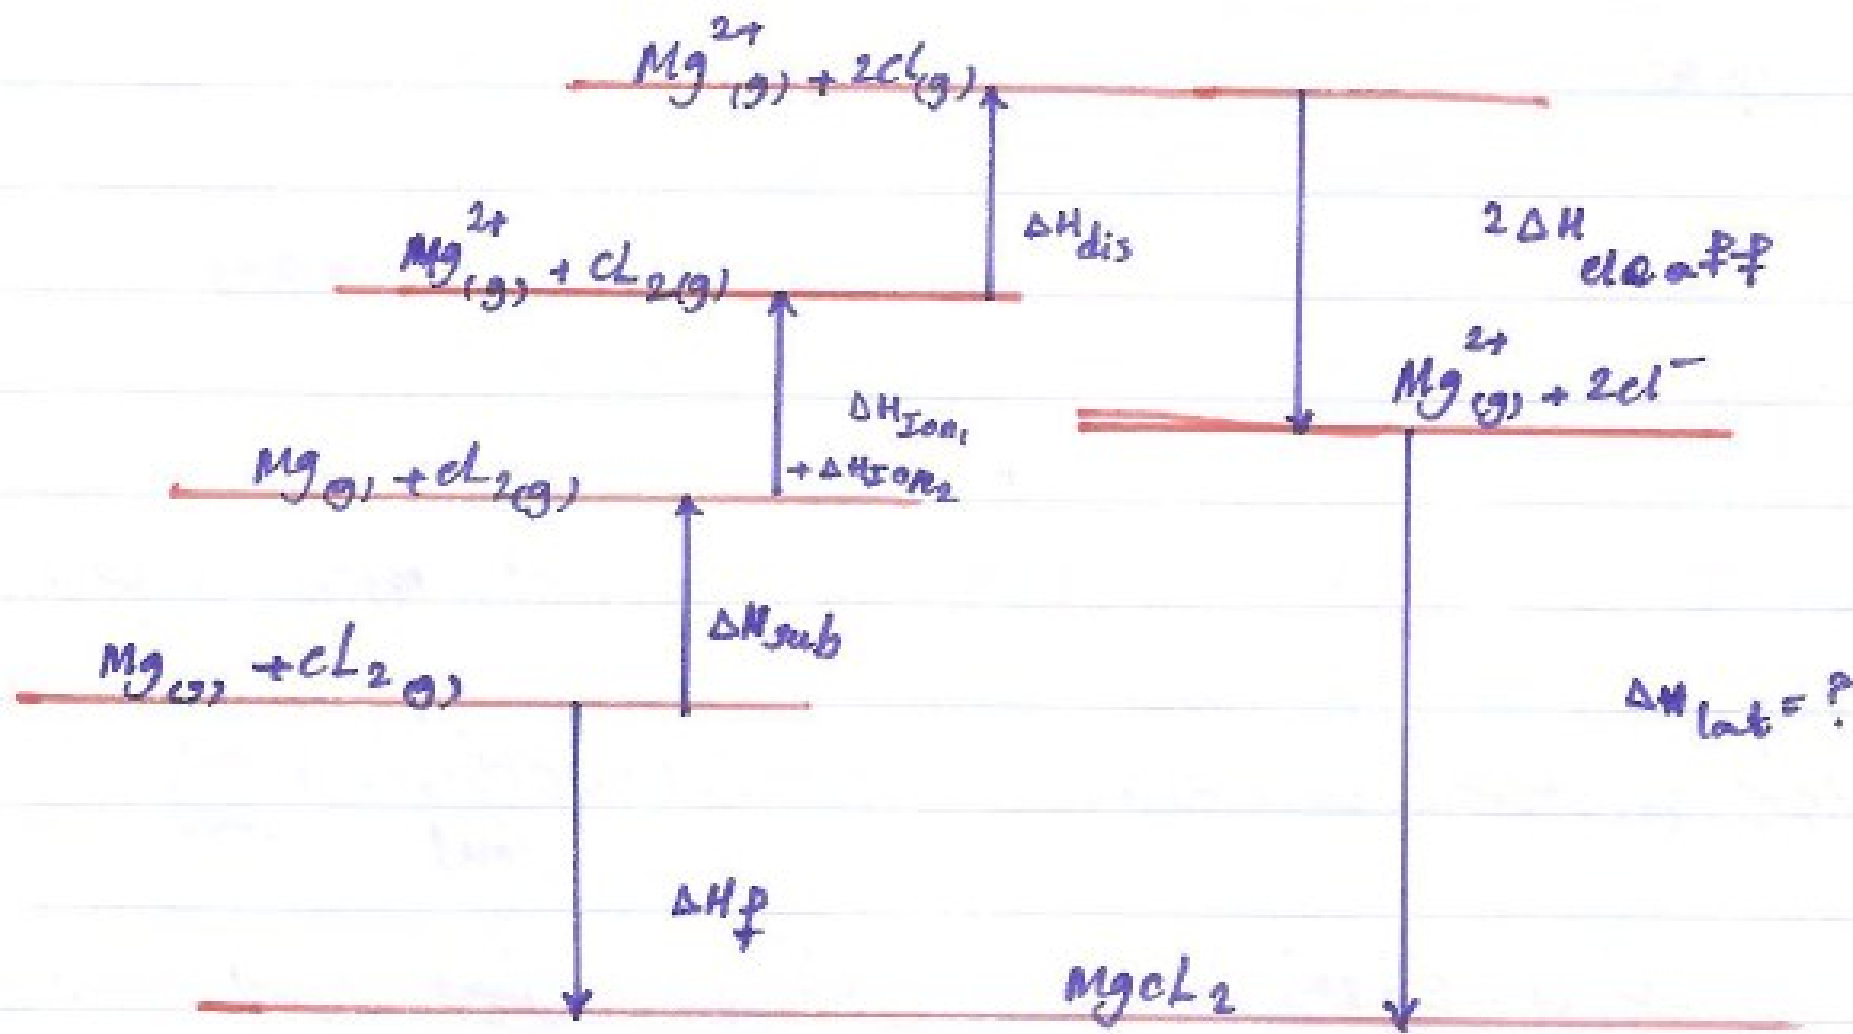 Mg²⁺(g) + 2Cl(g)
ΔHdis
2ΔH ele aff
Mg²⁺(g) + CL₂(g)
Mg²⁺(g) + 2cl⁻
ΔHIon₁
+ ΔHIon₂
Mg(g) + cL₂(g)
ΔHsub
Mg(s) + cL₂(g)
ΔHlat = ?
ΔHf
MgcL₂